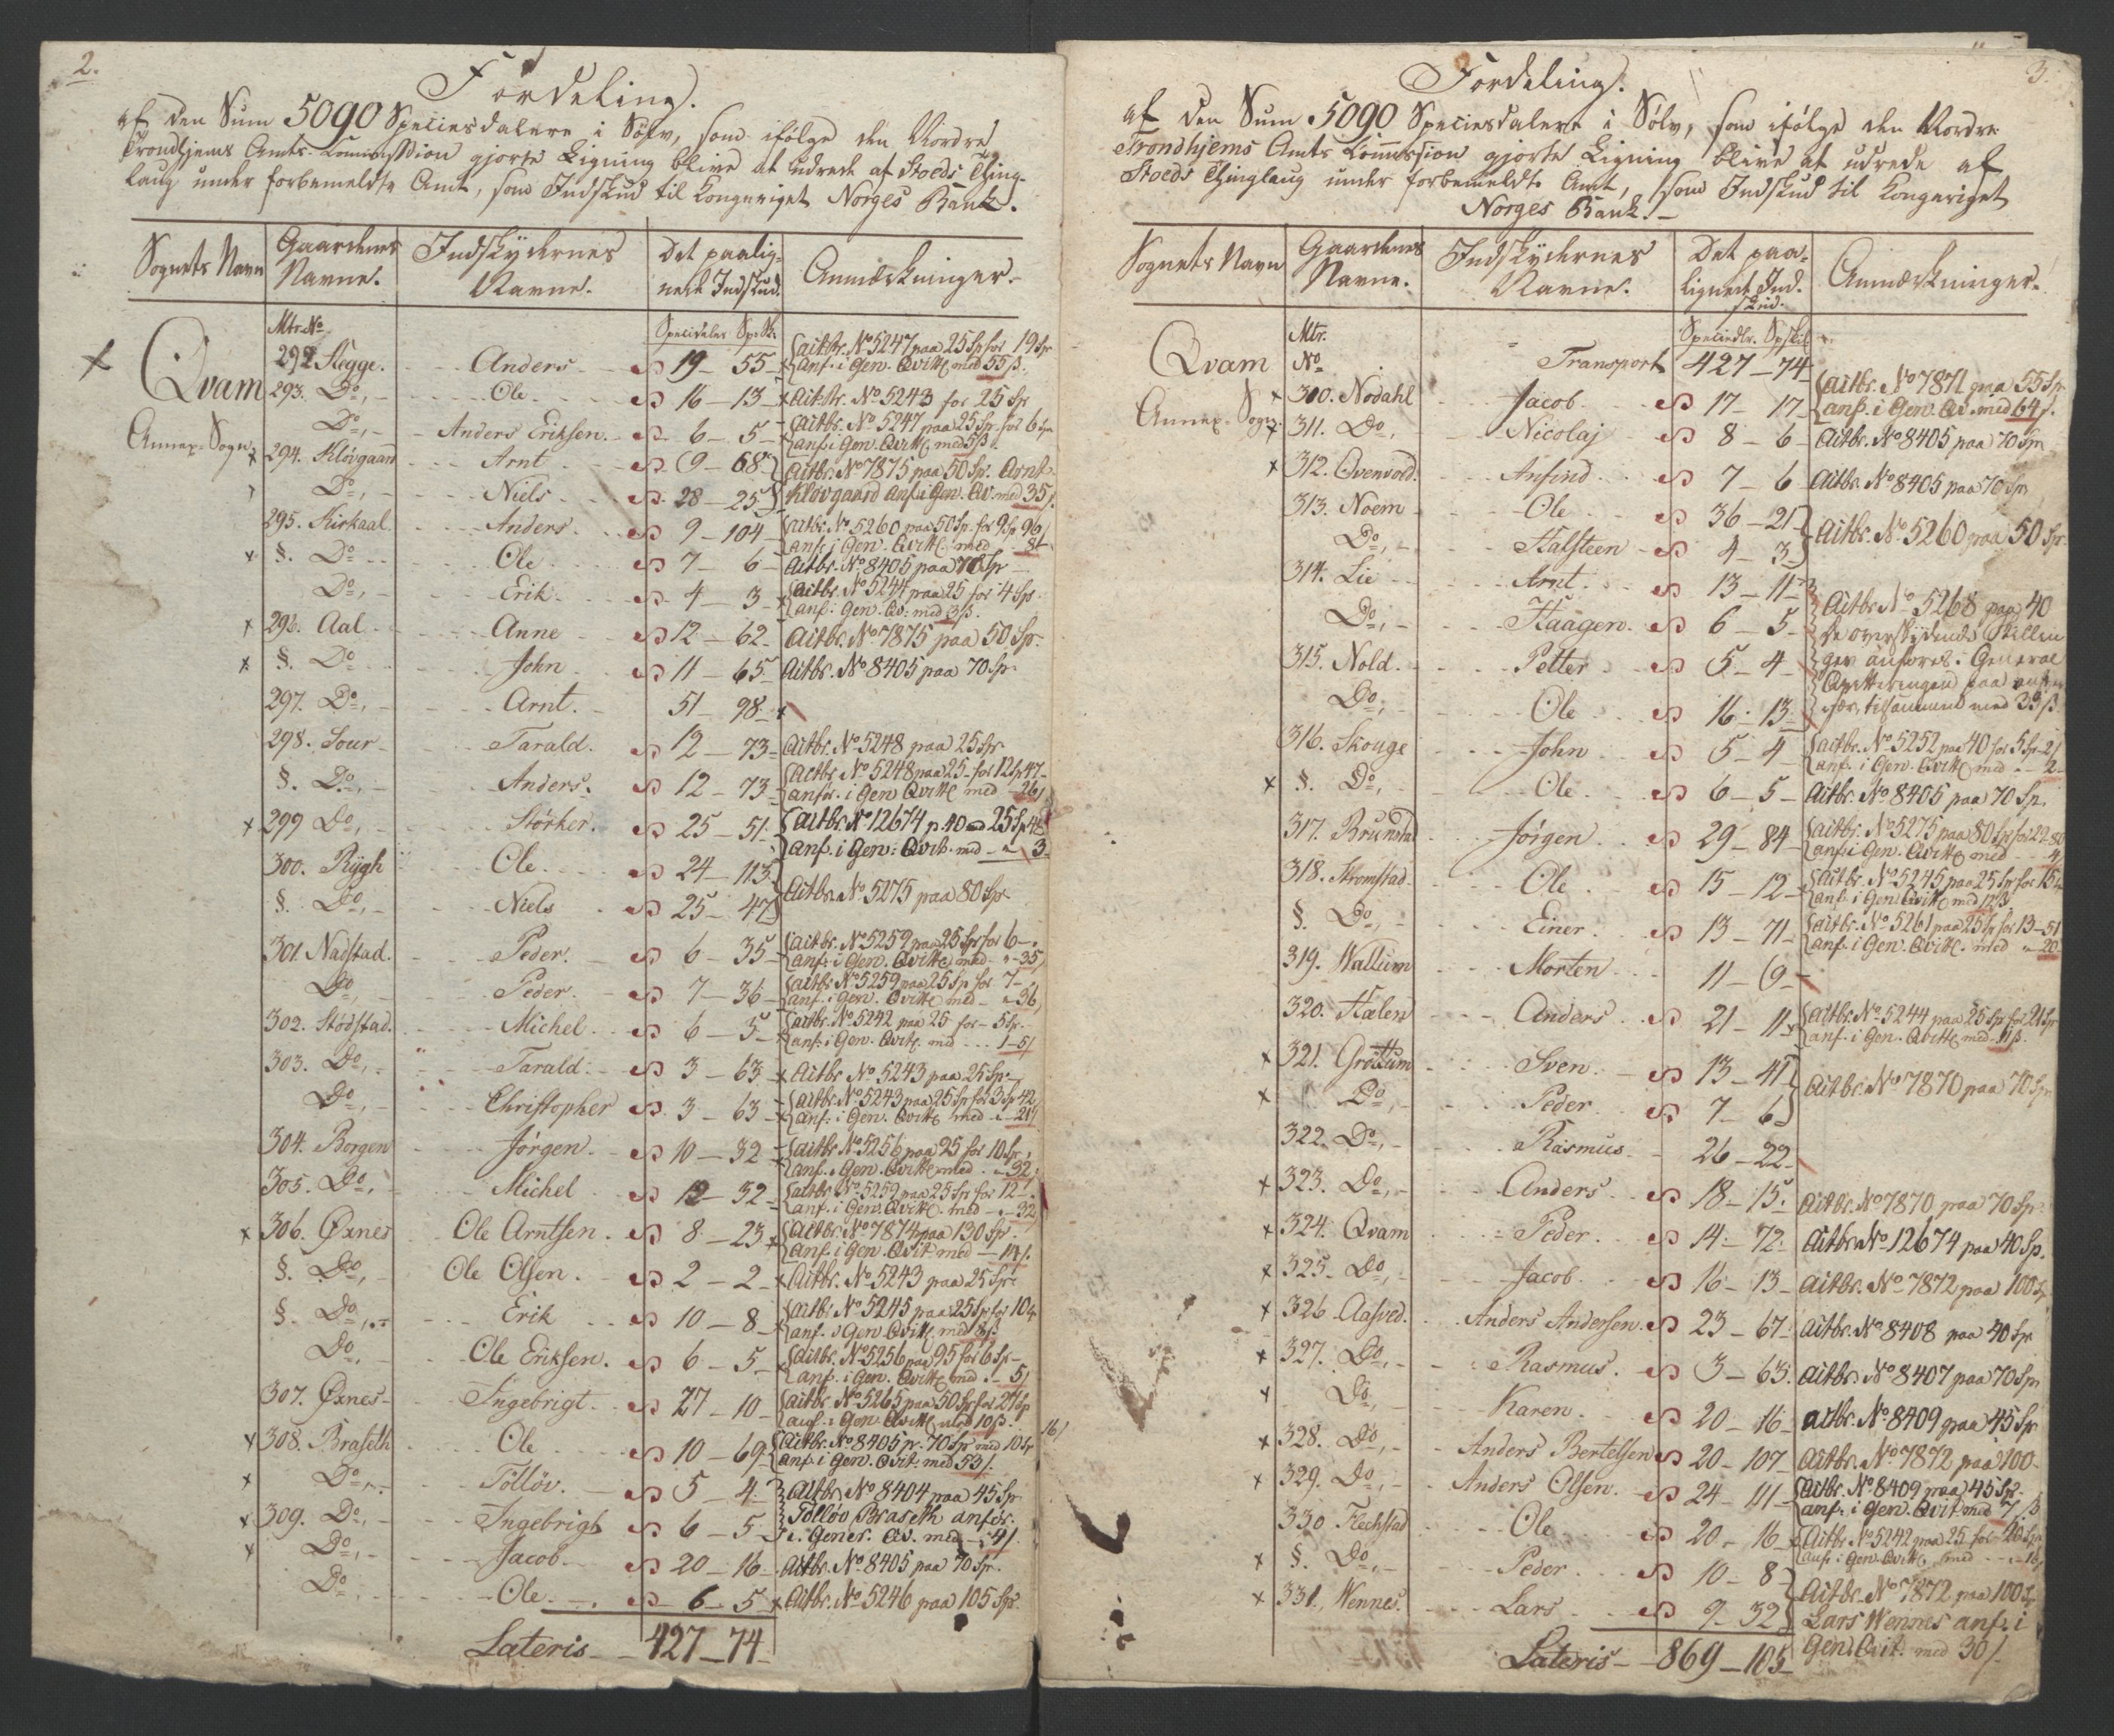 2.
Fordeling.
af den Sum 5090 Speciesdalere i Sølv, som ifølge den Nordre
Trondhjems Amts-Commission gjorte Ligning blive at udrede af Stoeds Thing-
laug under forbemeldte Amt, som Indskud til Kongeriget Norges Bank.
Sognets Navn | Gaardenes Navne. | Indskydernes Navne. | Det paalig- nede Indskud. | Anmærkninger.
Mtr. No | Speciedaler Sp. Sk.
Qvam 292 Stegge. Anders 19 – 55 Actbr. No 5247 paa 25 Sp for 19 Sp
anf. i Gen. Qvitt med 55 ß.
293. Do, Ole 16 – 13 Actbr. No 5243 for 25 Sp
Annex-Sogn Do, Anders Eriksen 6 – 5 Actbr. No 5247 paa 25 Sp for 6 Sp
anf. i Gen. Qvitt med 5 ß
294. Kløvgaard Arnt 9 – 68 Actbr. No 7875 paa 50 Sp. Arnt
Do, Niels 28 – 25 Kløvgaard anf. i Gen. Qv. med 35
295. Kirkaal Anders 9 – 104 Actbr. No 5260 paa 50 Sp for 9 Sp 96
anf. i Gen. Qvitt med 8
§. Do Ole 7 – 6 Actbr. No 8405 paa 70 Sp
Do, Erik 4 – 3 Actbr. No 5244 paa 25 for 4 Sp.
anf. i Gen. Qv. med 3 ß.
296. Aal Anne 12 – 62 Actbr. No 7875 paa 50 Sp.
§. Do John 11 – 65 Actbr. No 8405 paa 70 Sp.
297. Do, Arnt. 51 – 98
298. Sour Tarald. 12 – 73 Actbr. No 5248 paa 25 Sp.
§. Do, Anders. 12 – 73 Actbr. No 5248 paa 25 for 12 Sp 47
anfør. i Gen Qvitt med 26
299 Do, Størker. 25 – 51 Actbr. No 12674 p. 40 25 Sp 48
anf. i Gen: Qvit. med 3
300. Rygh Ole 24 – 113
§. Do, Niels 25 – 47 Actbr. No 5275 paa 80 Sp.
301. Nadstad. Peder. 6 – 35 Actbr. No 5259 paa 25 Sp for 6
anf. i Gen. Qvitt med 35
Do, Peder. 7 – 36 Actbr. No 5259 paa 25 Sp for 7
anf. i Gen. Qvitt med 36
302. Stødstad. Michel 6 – 5 Actbr. No 5242 paa 25 for 5 Sp.
anf. i Gen. Qvitt. med 1 – 5
303. Do, Tarald. 3 – 63 Actbr No 5243 paa 25 Sp.
Do, Christopher 3 – 63 Actbr. No 5243 paa 25 Sp for 3 Sp 42
anf. i Gen. Qvitt med 21
304. Borgen Jørgen 10 – 32 Actbr No 5256 paa 25 for 10 Sp
anf. i Gen. Qvitt med 32
305. Do, Michel 12 – 32 Actbr. No 5259 paa 25 Sp for 12
anf. i Gen. Qvitt. med 32
306. Øxnes Ole Arntsen. 8 – 23 Actbr. No 7874 paa 130 Sp
anf. i Gen Qvit med 14
§. Do, Ole Olsen. 2 – 2 Actbr. No 5243 paa 25 Sp.
§. Do, Erik 10 – 8 Actbr No 5245 paa 25 Sp for 10
anf. i Gen Qvitt med 8 ß
Do, Ole Eriksen. 6 – 5 Actbr. No 5256 paa 95 for 6 Sp
anf. i Gen. Qvitt med 5
307. Øxnes Ingebrigt 27 – 10 Actbr. No 5265 paa 50 Sp for 27 Sp
anf. i Gen. Qvitt med 10 ß.
308. Braseth Ole 10 – 69 Actbr. No 8405 p. 70 Sp med 10 Sp 16
anf. i Gen. Qvit. med 53
Do, Tolløv. 5 – 4 Actbr. No 8404 paa 45 Sp
309. Do, Ingebrigt 6 – 5 Tolløv Braseth anfør.
i Gener. Qv. med 4
Do, Jacob 20 – 16 Actbr. No 8405 paa 70 Sp.
Do, Ole 6 – 5 Actbr. No 5246 paa 105 Sp.
Lateris 427 – 74
3.
Fordeling.
af den Sum 5090 Speciesdalere i Sølv, som ifølge den Nordre
Trondhjems Amts Commission gjorte Ligning blive at udrede af
Stoeds Thinglaug under forbemeldte Amt, som Indskud til Kongeriget
Norges Bank.
Sognets Navn | Gaardenes Navne. | Indskydernes Navne. | Det paa- lignede Ind- skud. | Anmærkninger.
Mtr. No | Speciedlr. Sp. skil
Qvam Transport 427 – 74
Annex-Sogn 310. Nodahl Jacob 17 – 17 Actbr. No 7871 paa 55 Sp
anf. i Gen. Qv. med 64
311. Do, Nicolaj 8 – 6 Actbr. No 8405 paa 70 Sp
312. Qvenvold. Anfind 7 – 6 Actbr. No 8405 paa 70 Sp
313. Noem Ole 36 – 21
Do, Halsteen 4 – 3 Actbr. No 5260 paa 50 Sp
314. Lie Arnt 13 – 11 Actbr No 5268 paa 40
Do, Haagen. 6 – 5 de overskydende Skillin
315. Nold. Petter 5 – 4 ger anføres i General
Do, Ole 16 – 13 tilsammen med 33 ß
316. Skouge John 5 – 4 Actbr. No 5252 paa 40 for 5 Sp 2
anf. i Gen. Qvitt med 2
§. Do, Ole 6 – 5 Actbr. No 8405 paa 70 Sp.
317. Brunstad Jørgen 29 – 84 Actbr. No 5275 paa 80 Sp for 29 80
anf. i Gen. Qvitt med 4
318. Stromstad Ole 15 – 12 Actbr. No 5245 paa 25 Sp for 15
anf. i Gen Qvitt med 12 ß
§. Do, Einer. 13 – 71 Actbr. No 5261 paa 25 Sp for 13 – 51
anf. i Gen. Qvitt. med 20
319. Wallum Morten 11 – 9
320. Hælen Anders 21 – 11 Actbr. No 5244 paa 25 Sp for 21 Sp
anf. i Gen. Qvitt med 11 ß.
321. Grøttum Sven. 13 – 41
Do, Peder. 7 – 6 Actbr. No 7870 paa 70 Sp
322. Do, Rasmus 26 – 22
323. Do, Anders 18 – 15 Actbr. No 7870 paa 70 Sp.
324. Qvam Peder. 14 – 72 Actbr. No 12674 paa 40 Sp.
325. Do, Jacob. 16 – 13 Actbr. No 7872 paa 100 Sp
326. Aasved. Anders Andersen. 23 – 67 Actbr. No 8408 paa 40 Sp
327. Do, Rasmus. 3 – 63 Actbr. No 8407 paa 70 Sp
Do, Karen. 20 – 16 Actbr. No 8409 paa 45 Sp
328. Do, Anders Bertelsen 20 – 107 Actbr. No 7872 paa 100
329. Do, Anders Olsen. 24 – 111 Actbr. No 8409 paa 45 Sp.
anf. i Gen. Qvit med 7 ß
330 Flechstad Ole 20 – 16 Actbr. No 5242 paa 25 for 20 Sp
anf. i Gen. Qvitt med 16
§. Do, Peder 10 – 8 Actbr. No 7872 paa 100 Sp
331. Wennes. Lars 9 – 32 Lars Wennes anf. i
Gen. Qvit. med 30
Lateris 869 – 105